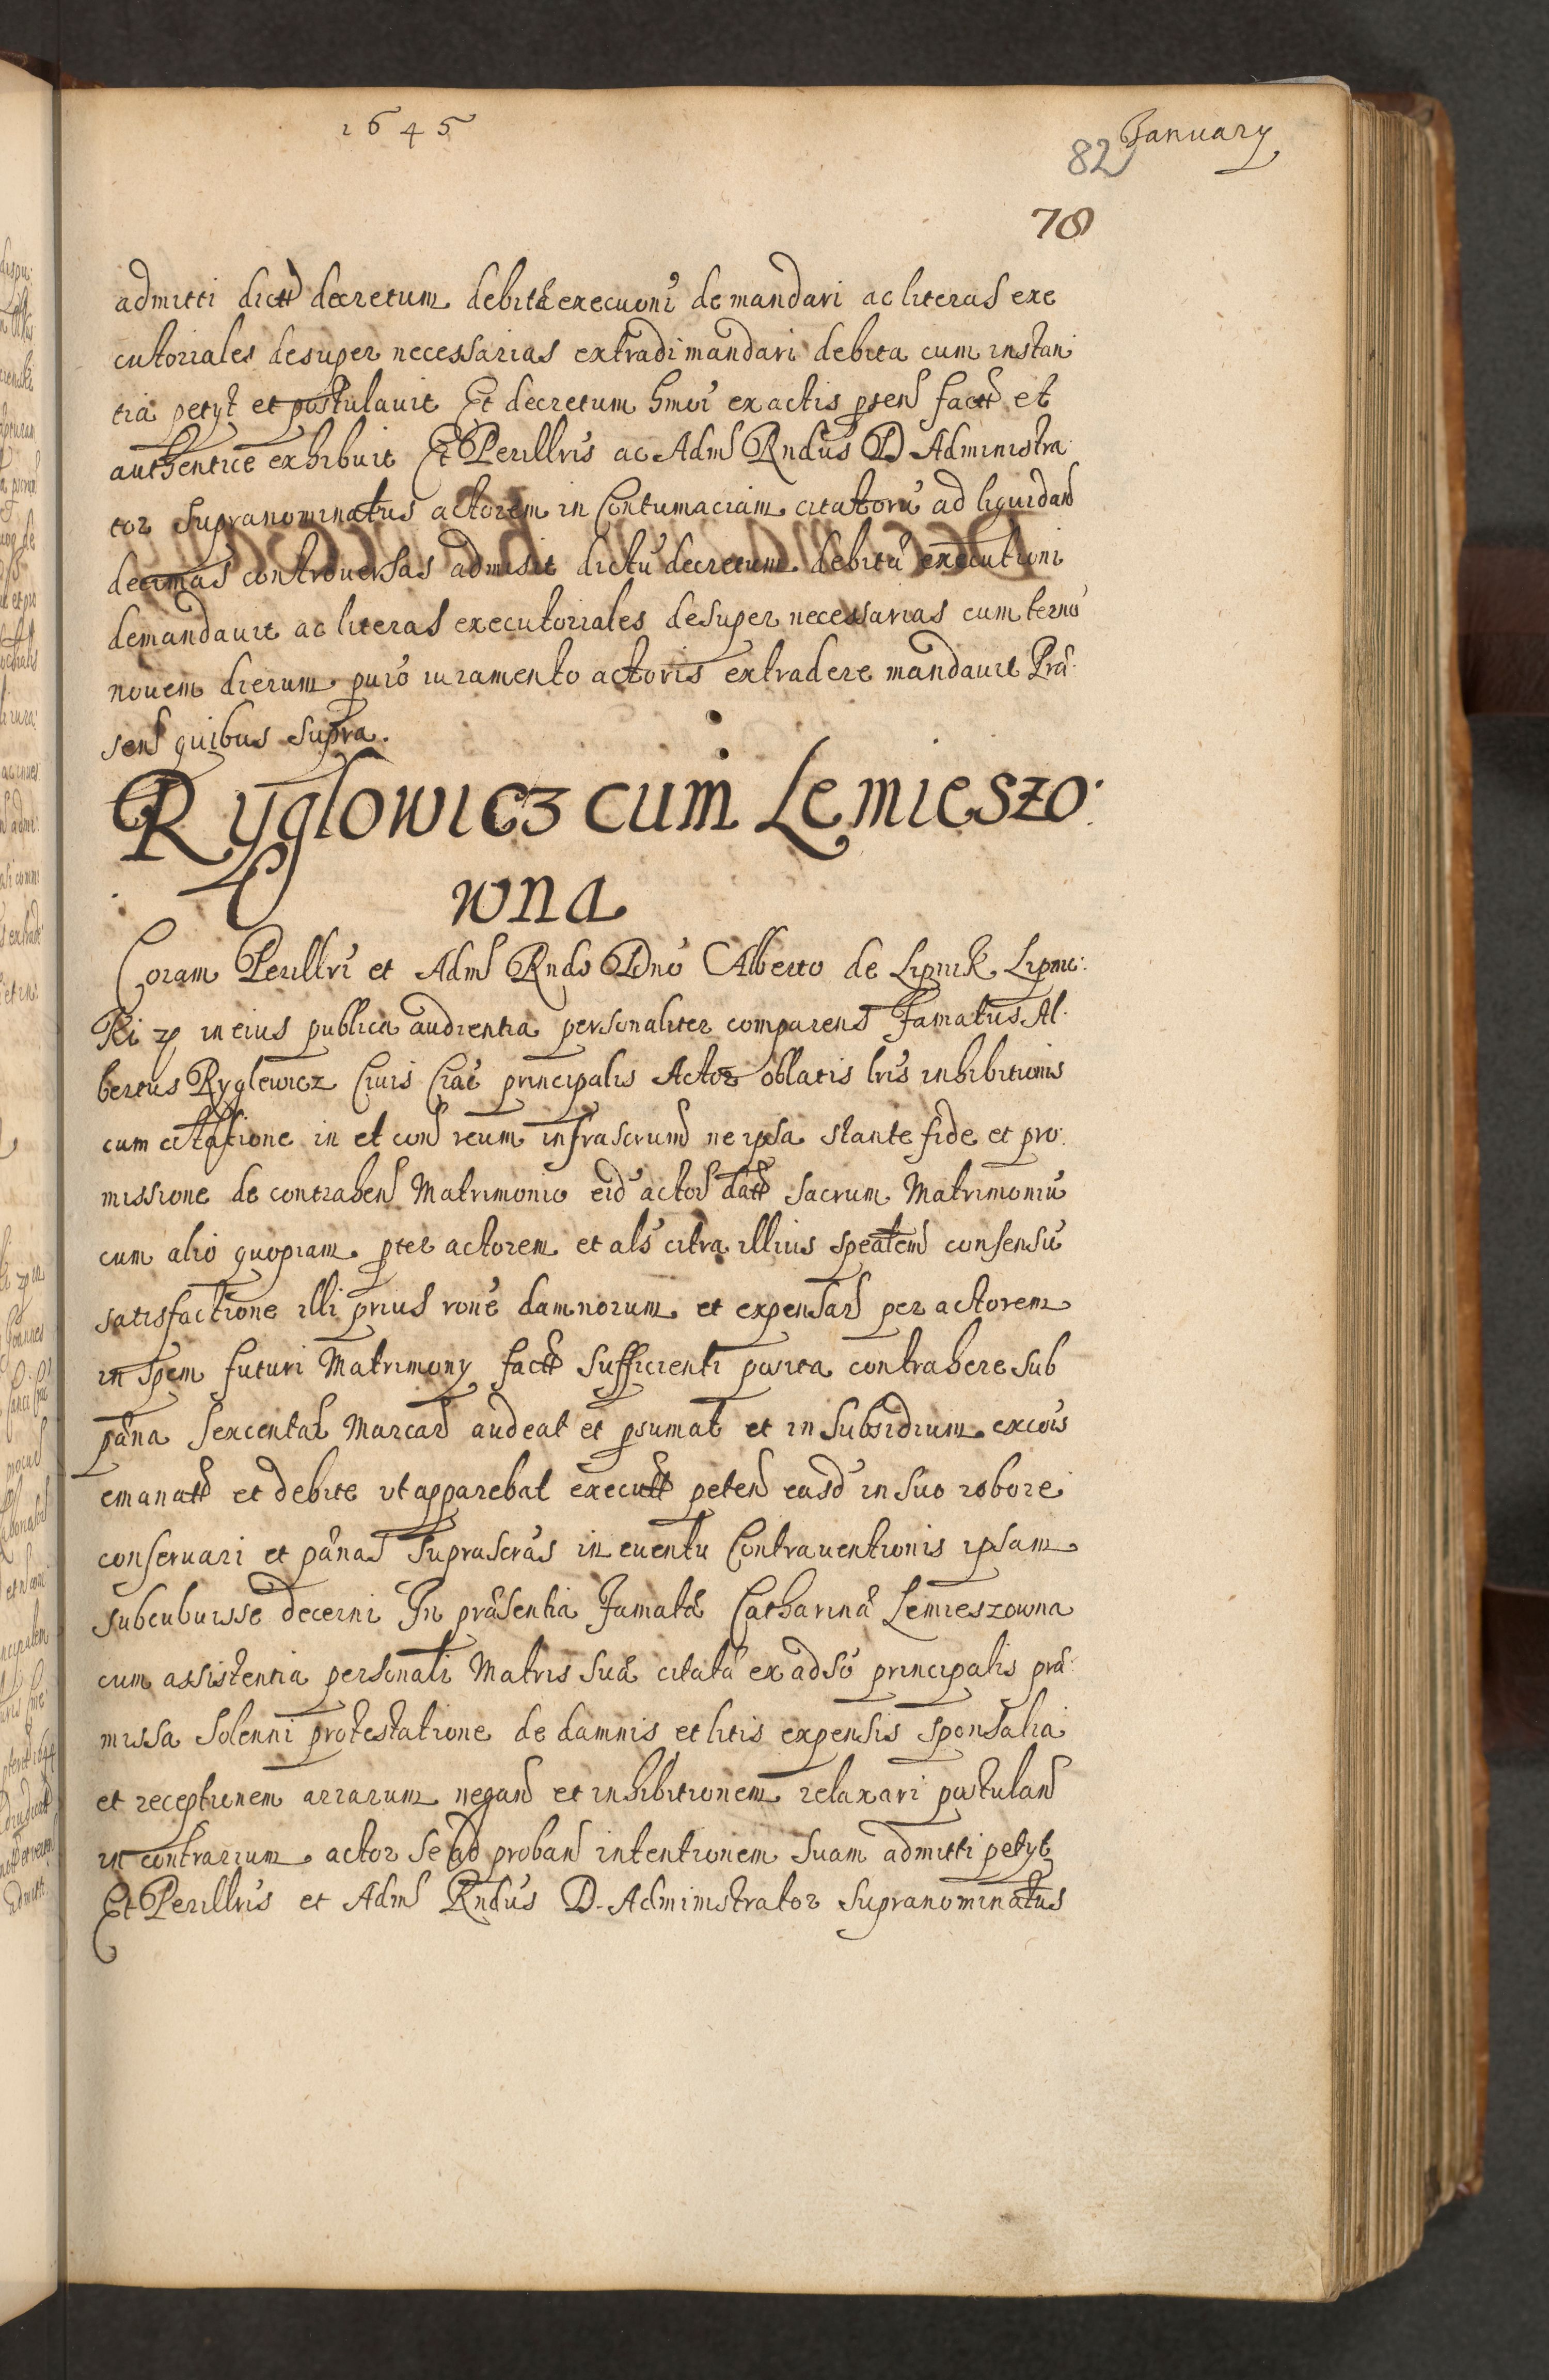 1645
January
82
78
admitti dictu decretum debitæ execuoni demandari ac literas exe
cutoriales desuper necessarias extradi mandari debita cum instan
tia petyt et postulavit Et decretum hmoi ex actis pnten fact et
authentice exhibuit Et Perillris ac Adm Rndus D Administra
tor supranominatus actorem in Contumaciam citatoru ad liquidand
decimas controversas admisit dictu decretum debitæ executioni
demandavit ac literas executoriales desuper necessarias cum termo
novem dierum puio iuramento actoris extradere mandavit Præ
sen quibus supra.
Ryglowicz cum Lemieszo:
wna
Coram Perillri et Adm Rndo Dno Alberto de Lipnik Lipnic:
ki in eius publica audientia personaliter comparens Famatus Al
bertus Ryglewicz Civis Crac principalis Actor oblatis lris inhibitionis
cum citatione in et con ream infrascrum ne ipsa stante fide et pro
missione de contrahen Matrimonio eid actori dat sacrum Matrimoniu
cum alio quopiam pter actorem et als citra illius speatem consensu
satisfactione illi prius rone damnorum et expensar per actorem
in spem futuri Matrimony fact sufficienti parita contrahere sub
pæna sexcentar Marcar audeat et psumat et in subsidium excois
emanat et debite ut apparebat execut peten easd in suo robore
conservari et pænas suprascras in eventu Contraventionis ipsam
subcubuisse decerni In præsentia Famatæ Catharinæ Lemieszowna
cum assistentia personali Matris suæ citatæ ex adso principalis præ
missa solenni protestatione de damnis et litis expensis sponsalia
et receptionem arrarum negan et inhibitionem relaxari postulan
in contrarium actor se ad proban intentionem suam admitti petyt
Et Perillris et Adm Rndus D. Administrator supranominatus